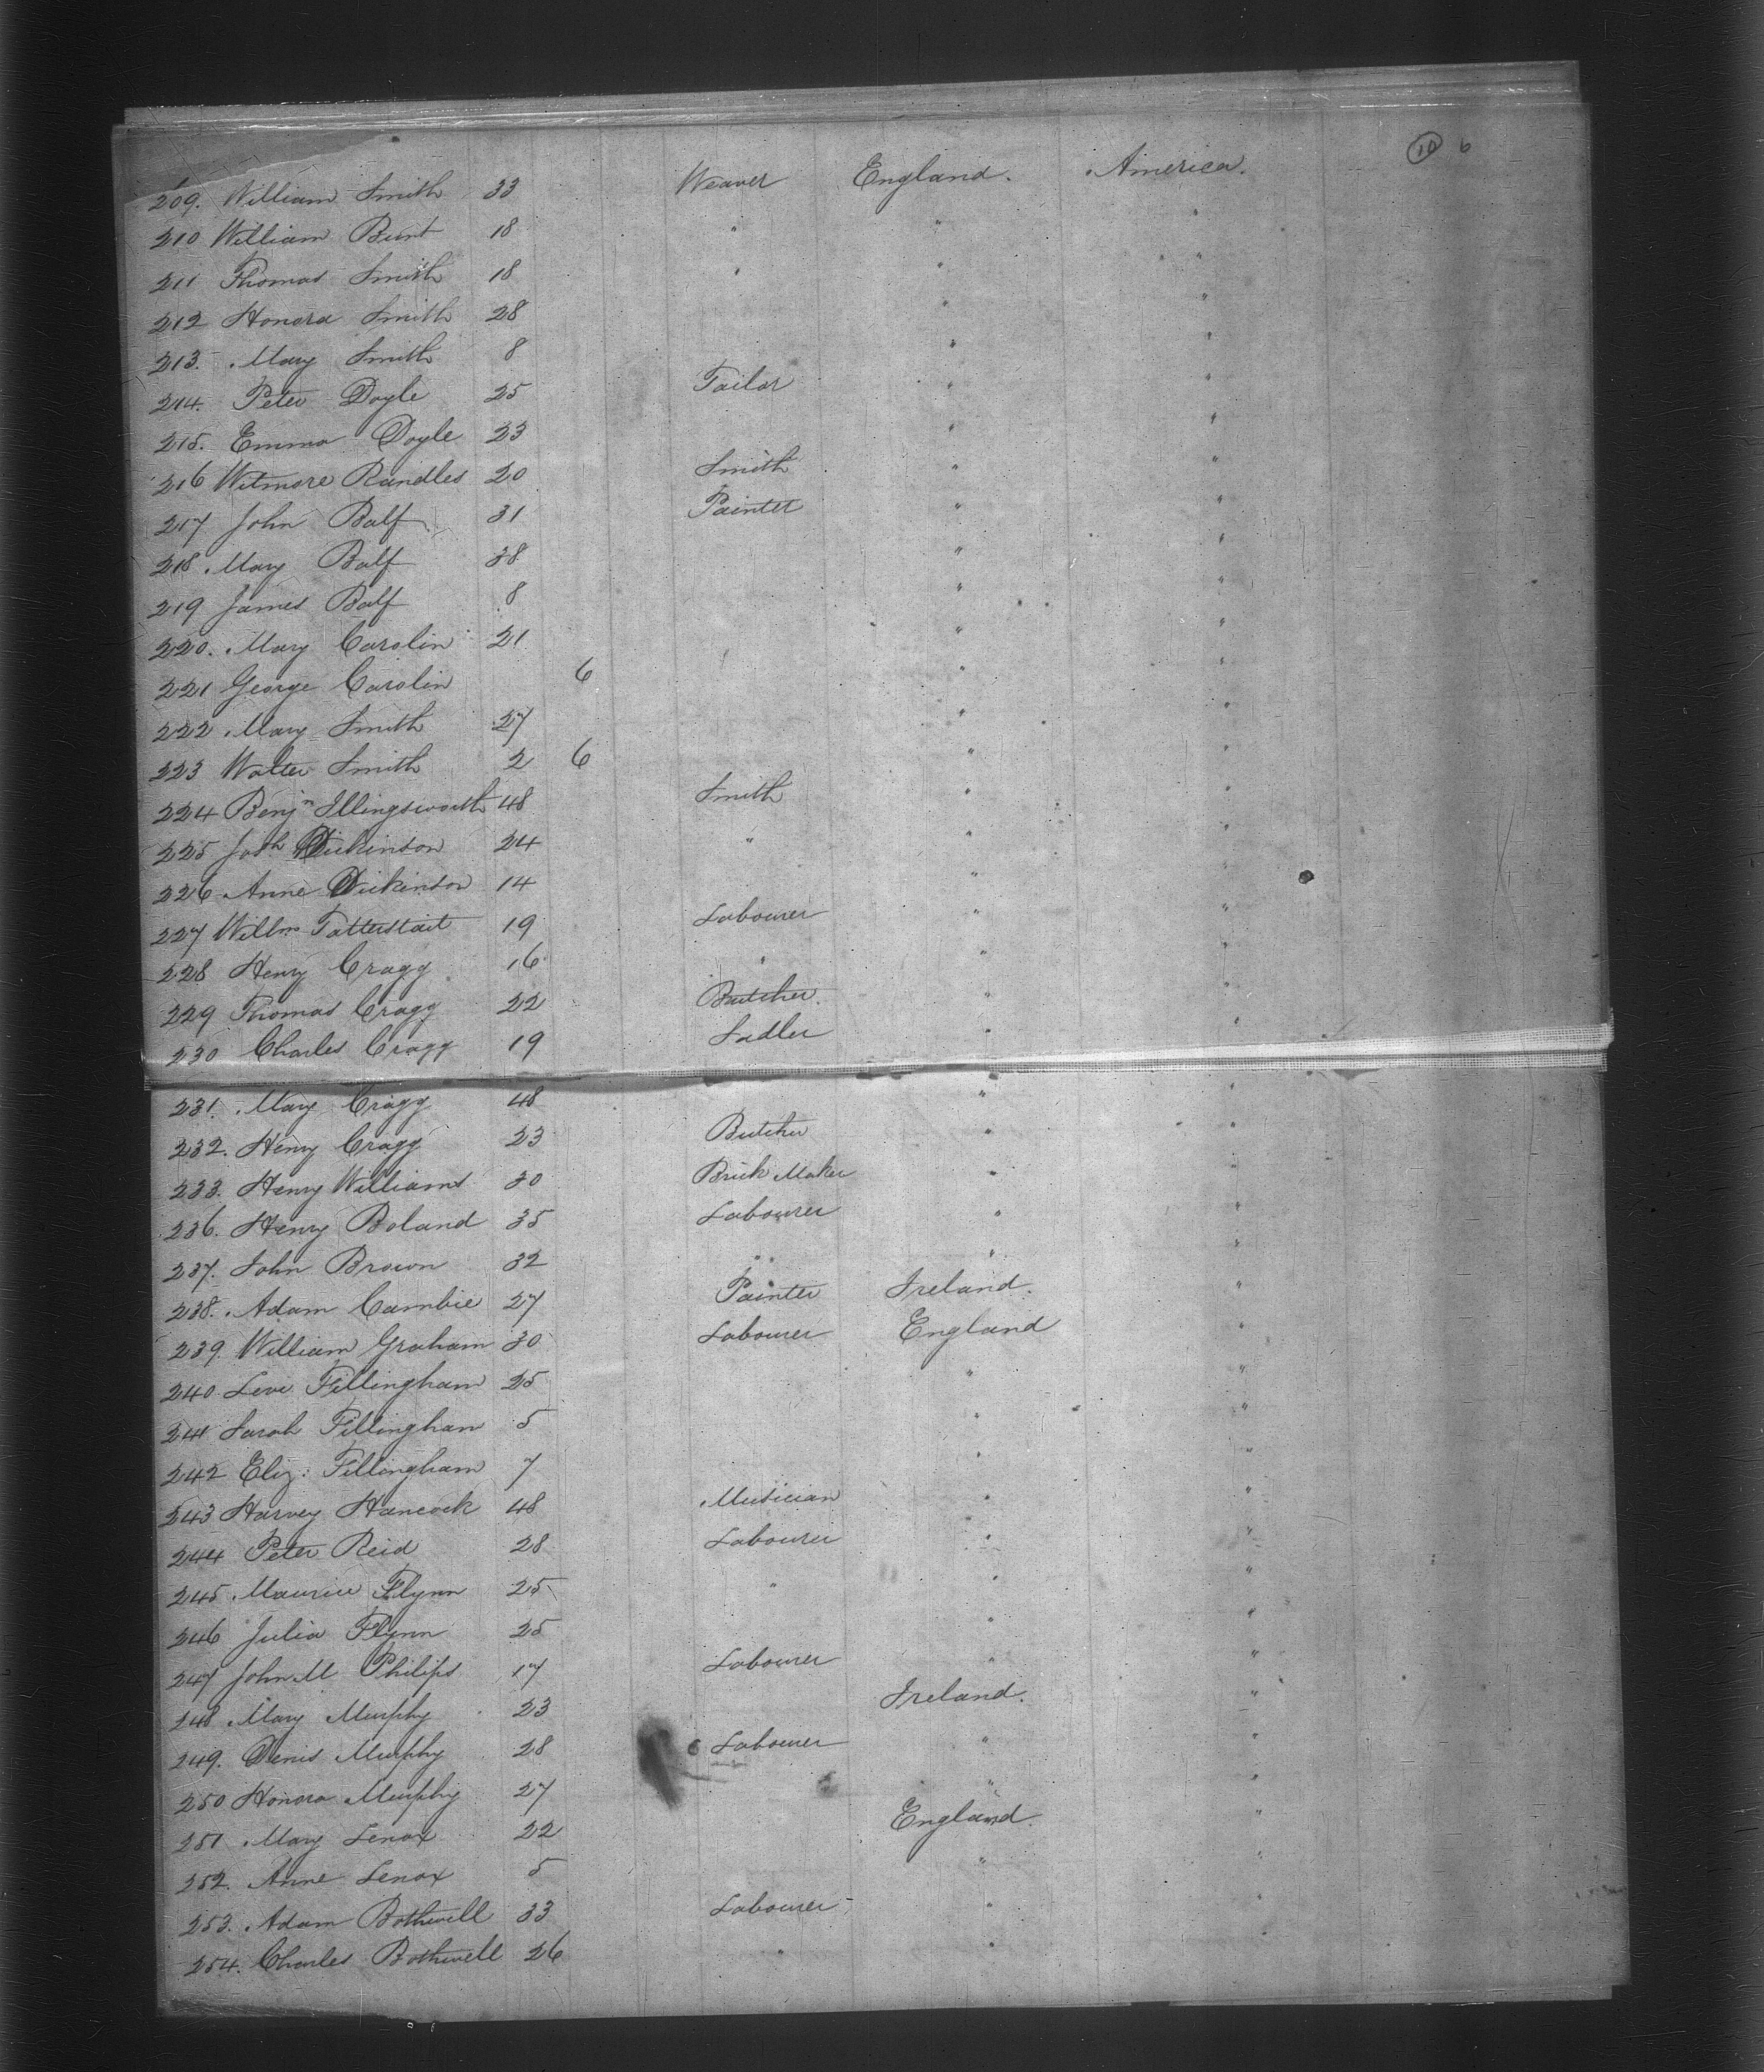 10 6
209. William Smith 33 Weaver England. America.
210 William Bunt 18 " " "
211 Thomas Smith 18 " " "
212 Honora Smith 28 " "
213. Mary Smith 8 " "
214. Peter Doyle 25 Tailor " "
215. Emma Doyle 23 " "
216 Witmore Randles 20 Smith " "
217 John Balf 31 Painter " "
218. Mary Balf 38 " "
219 James Balf 8 " "
220. Mary Carolin 21 " "
221 George Carolin 6 " "
222 Mary Smith 27 " "
223 Walter Smith 2 6 " "
224 Benjn Illingsworth 48 Smith " "
225 Josh Dickinson 24 " " "
226 Anne Dickinson 14 " "
227 Willm Tatterstait 19 Labourer " "
228 Henry Cragg 16 " " "
229 Thomas Cragg 22 Butcher. " "
230 Charles Cragg 19 Sadler " "
231. Mary Cragg 48 " "
232. Henry Cragg 23 Butcher " "
233. Henry Williams 30 Brick Maker " "
236. Henry Boland 35 Labourer " "
237. John Brown 32 " " "
238. Adam Cambie 27 Painter Ireland. "
239. William Graham 30 Labourer England "
240 Levi Fillingham 25 " "
241 Sarah Fillingham 5 " "
242 Eliz: Fillingham 7 " "
243 Harvey Hancock 48 Musician " "
244 Peter Reid 28 Labourer " "
245 Maurice Flynn 25 " " "
246 Julia Flynn 25 " "
247 John M Philips 17 Labourer " "
248 Mary Murphy 23 Ireland. "
249. Denis Murphy 28 Labourer " "
250 Honora Murphy 27 " "
251 Mary Lenox 22 England. "
252. Anne Lenox 5 " "
253. Adam Bothwell 33 Labourer " "
254. Charles Bothwell 26 " "